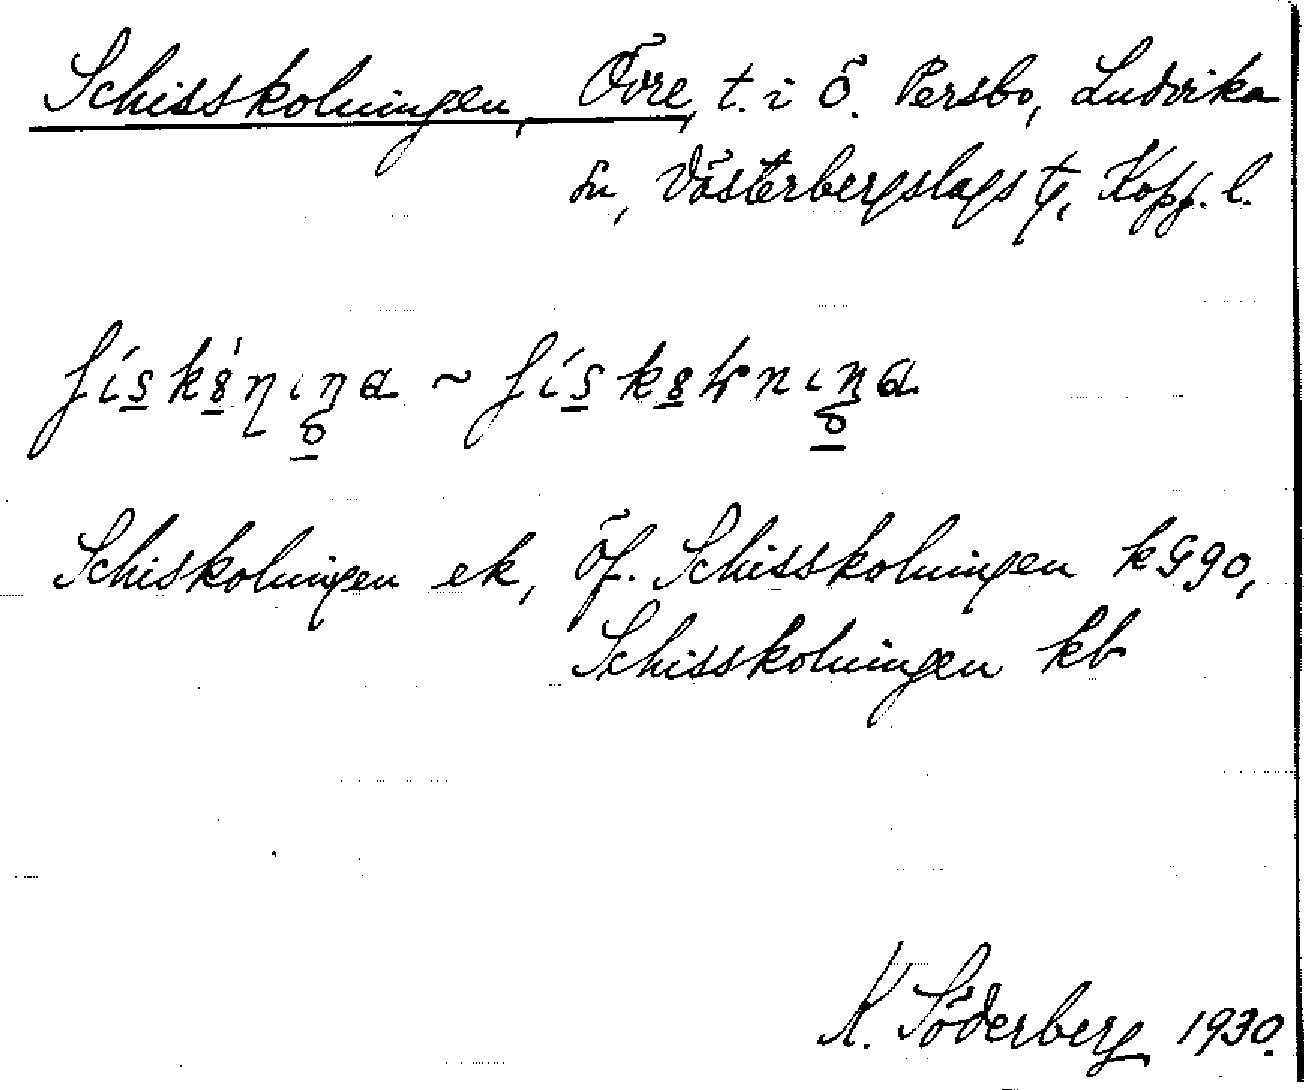 Schisskolningen, Övre, t. i Ö. Persbo, Ludvika
sn, Västerbergslags tg, Kopp. l.
Schiskolningen ek, Öf. Schisskolningen k G 90,
Schisskolningen kb
K. Söderberg 1930.